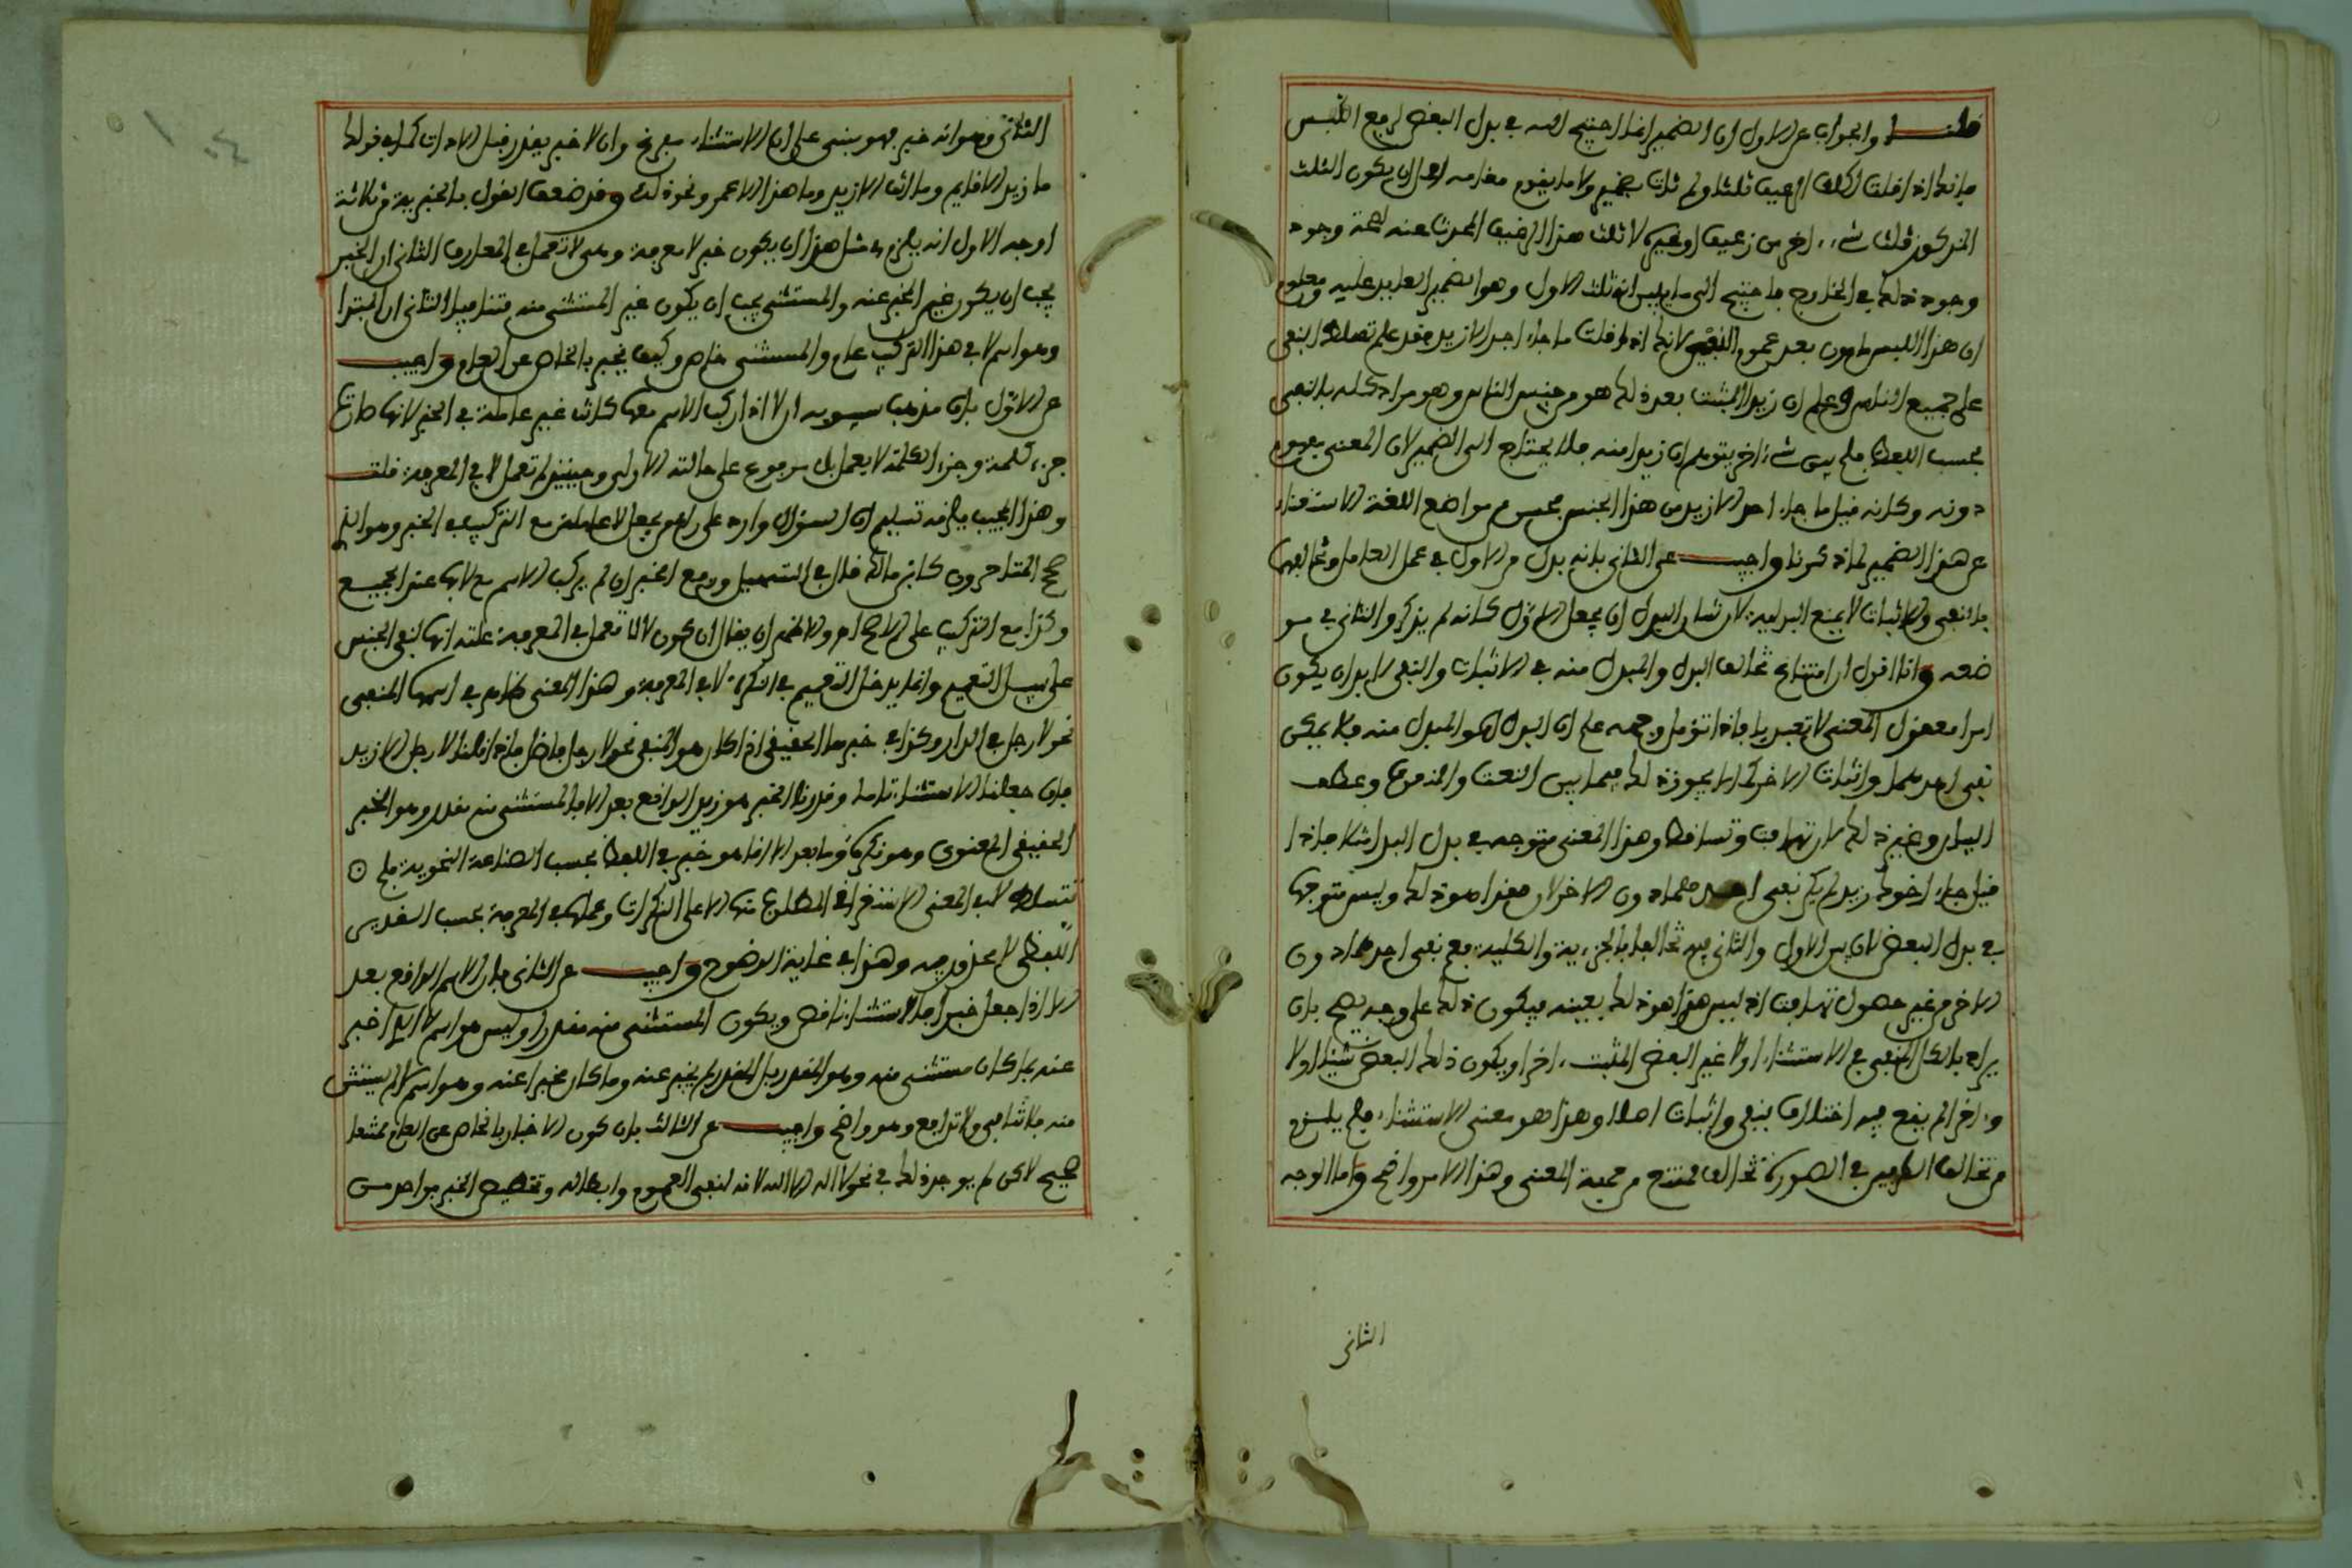 قلنا والجواب عن الاول ان الضمير انما احتيج اليه في بدل البعض لرفع اللبس
فإنك اذا قلت اكلت الرغيف ثلثا ولم تات بضمير ولا ما يقوم مقامه احتمل ان يكون الثلث
المذكور ثلث شيء اخر من رغيف او غيره لا ثلث هذا الرغيف المحدث عنه لصحة وجود
وجود ذلك في الخارج فاحتيج الى ما يبين انه ثلث الاول وهو الضمير العايد عليه ومعلوم
ان هذا اللبس مامون بعد عموم النفي لانك اذا قلت ما جاء احد الا زيد فقد علم تسلط النفي
على جميع الناس وعلم ان زيدا المثبت بعد ذلك هو من جنس الناس وهو مراد كله بالنفي
بحسب اللفظ فلم يبق شيء اخر يتوهم ان زيدا منه فلا يحتاج الى الضمير لان المعنى مفهوم
دونه وكانه قيل ما جاء احد الا زيد من هذا الجنس من مواضع اللغة الاستغناء
عن هذا الضمير لما ذكرنا واجيب عن الثاني بانه بدل من الاول في عمل العامل وتخالفهما
بالنفي والاثبات لا يمنع البدلية لان شان البدل ان يجعل الاول كانه لم يذكر والثاني في مو
ضعه وانا اقول ان امتناع تخالف البدل والمبدل منه في الاثبات والنفي لا بد ان يكون
امرا معقول المعنى لا تعبديا فاذا تؤمل وجهه علم ان البدل هو المبدل منه فلا يمكن
نفي احدهما واثبات الاخر كما لا يجوز ذلك فيما بين النعت والمنعوت وعطف
البيان وغير ذلك لانه تهافت وتساقط وهذا المعنى متوجه في بدل البدا مثلا فاذا
قيل جاء اخوك زيد لم يكن نفي احدهما دون الاخر لان هذا هو ذلك وليس متوجها
في بدل البعض لان بين الاول والثاني فيه تخالفا بالجزءية والكلية فصح نفي احدهما دون
الاخر من غير حصول تهافت اذ ليس هذا هو ذلك بعينه فيكون ذلك على وجه يصح بان
يراد بالكل المنفي في الاستثناء اولا غير البعض المثبت اخرا ويكون ذلك البعض شيئا اولا
واخرا لم يقع فيه اختلاف بنفي واثبات اصلا وهذا هو معنى الاستثناء فلم يلزم
من تخالف الطرفين في الصورة تخالف ممتنع من جهة المعنى وهذا الامر واضح واما الوجه
الثاني
الثاني وهو انه خبر فهو ينبني على ان الاستثناء مفرغ وان لا خبر يقدر قبل الاداة كما في قولك
ما زيد الا قايم وما قام الا زيد وما هذا الا عمر ونحو ذلك وقد ضعف القول بالخبرية من ثلاثة
اوجه الاول انه يلزم في مثل هذا ان يكون خبر لا معرفة وهي لا تعمل في المعارف الثاني ان الخبر
يجب ان يكون غير المخبر عنه والمستثنى يجب ان يكون غير المستثنى منه فتنافيا الثاني ان المبتدا
وهو اسم لا في هذا التركيب عام والمستثنى خاص وكيف يخبر بالخاص عن العام واجيب
عن الاول بان مذهب سيبويه ان لا اذا ركب الاسم معها كانت غير عاملة في الخبر لانها صارت
جزء كلمة وجزء الكلمة لا يعمل بل مرفوع على حالته الاولى وحينئذ لم تعمل لا في المعرفة قلت
وهذا المجيب يلزمه تسليم ان السؤال وارد على راي من يجعل لا عاملة مع التركيب في الخبر وهو الذي
صح المتاخرون كابن مالك قال في التسهيل ورفع الخبر ان لم يركب الاسم مع لا بها عند الجميع
وكذا مع التركيب على الاصح اهـ والاظهر ان يقال ان كون لا لا تعمل في المعرفة علته انها لنفي الجنس
على سبيل التعميم وانما يدخل التعميم في النكرة لا في المعرفة وهذا المعنى ظاهر في اسمها المنفي
نحو لا رجل في الدار وكذا في خبرها الحقيقي اذا كان هو المنفي نحو لا رجل فاضل فاذا قلنا لا رجل الا زيد
فان جعلنا الاستثناء تاما وقدرنا الخبر هو زيد الواقع بعد الا فالمستثنى منه مقدر وهو الخبر
الحقيقي المعنوي وهو نكرة وما بعد الا انما هو خبر في اللفظ بحسب الصناعة النحوية فلم
تتسلط لا في المعنى الاستغراقي المطلوع منها الا على النكرات وعملها في المعرفة بحسب التقدير
اللفظي لا محذور فيه وهذا في غاية الوضوح واجيب عن الثاني بان الاسم الواقع بعد
الا اذا جعل خبرا فالاستثناء ناقص ويكون المستثنى منه مقدرا وليس هو اسم لا الذي اخبر
عنه فما كان مستثنى منه وهو المقدر بل المقدر لم يخبر عنه وما كان مخبرا عنه وهو اسم لا لم يستثن
منه فلا تنافي ولا تدافع وهو واضح واجيب عن الثالث بان كون الاخبار بالخاص عن العام ممتنعا
صحيح لاكن لم يوجد ذلك في نحو لا اله الا الله لانه لنفي العموم وابطاله وتخصيص الخبر بواحد من